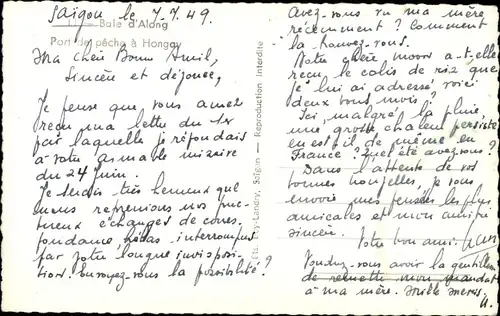 Saïgon le 7.7.49.
11 — Baie d'Along
Port de pêche à Hongay
Ma chère Bonne Amie,
Sincère et dévouée,
Je pense que vous avez
reçu ma lettre du 1er
par laquelle je répondais
à votre aimable missive
du 24 Juin.
Je serais très heureux que
nous reprenions nos fruc-
tueux échanges de corres-
pondance hélas interrompus
par votre longue indisposi-
tion. Envoyez-vous la possibilité ?
Ets. Landry, Saïgon — Reproduction Interdite
Avez-vous vu ma mère
récemment ? Comment
la trouvez-vous.
Notre chère a-t-elle
reçu le colis de riz que
je lui ai adressé, voici
deux bons mois ?
Ici, malgré la pluie,
une grosse chaleur persiste
en est-il de même en
France ? Quel été avez-vous ?
Dans l'attente de vos
bonnes nouvelles, je vous
envoie mes pensées les plus
amicales et mon amitié
sincère.
Votre bon ami.
Voudrez-vous avoir la gentillesse
de remettre mon mandat
à ma mère. Mille mercis,